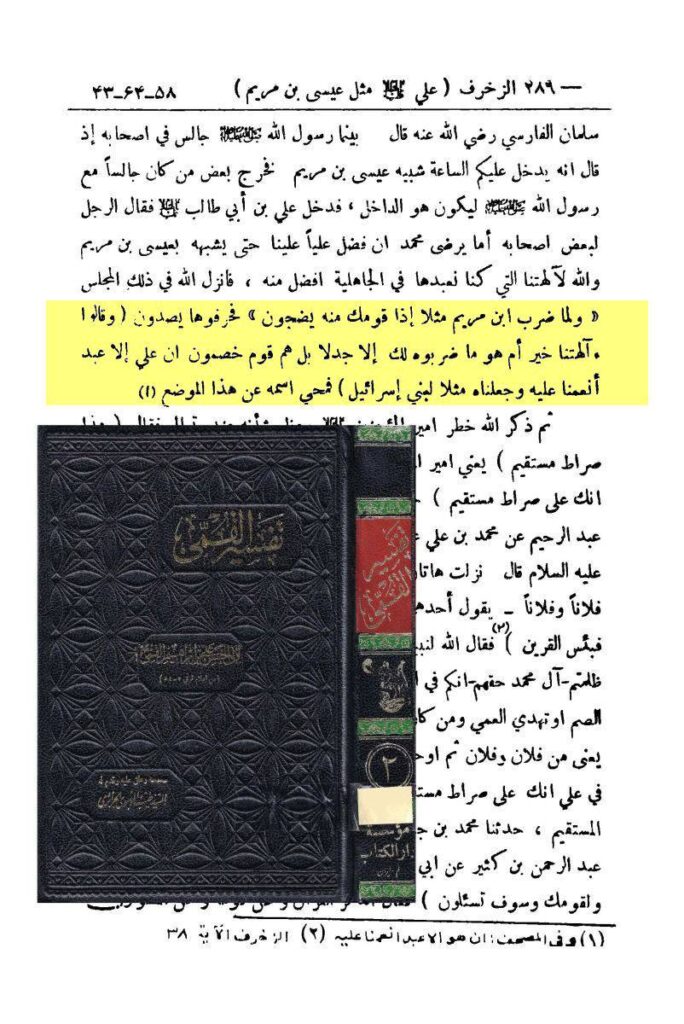 — ٢٨٩ الزخرف ( علي ﷺ مثل عيسى بن مريم ) ٥٨_٦٤_٤٣
سلمان الفارسي رضي الله عنه قال بينما رسول الله ﷺ جالس في اصحابه إذ
قال انه يدخل عليكم الساعة شبيه عيسى بن مريم فخرج بعض من كان جالساً مع
رسول الله ﷺ ليكون هو الداخل ، فدخل علي بن أبي طالب فقال الرجل
لبعض اصحابه أما يرضى محمد ان فضل علياً علينا حتى يشبهه بعيسى بن مريم
والله لآلهتنا التي كنا نعبدها في الجاهلية افضل منه ، فأنزل الله في ذلك المجلس
« ولما ضرب ابن مريم مثلا إذا قومك منه يضجون » فحرفوها يصدون ( وقالوا
ءآلهتنا خير أم هو ما ضربوه لك إلا جدلا بل هم قوم خصمون ان علي إلا عبد
أنعمنا عليه وجعلناه مثلا لبني إسرائيل ) فمحي اسمه عن هذا الموضع (١)
ثم ذكر الله خطر امير
صراط مستقيم ) يعني امير
انك على صراط مستقيم )
عبد الرحيم عن محمد بن علي
عليه السلام قال نزلت هاتان
فلاناً وفلاناً _ يقول أحدهما
فبئس القرين )(٢) فقال الله لنبيه
ظلمتم-آل محمد حقهم-انكم في
الصم او تهدي العمي ومن كان
يعني من فلان وفلان ثم اوحى
في علي انك على صراط مستقيم
المستقيم ، حدثنا محمد بن
عبد الرحمن بن كثير عن ابي
ولقومك وسوف تسئلون )
(١) وفي المصحف : ان هو الا عبد انعمنا عليه (٢) الزخرف الآية ٣٨
تفسير القمي
تفسير القمي
٢
مؤسسة
دار الكتاب